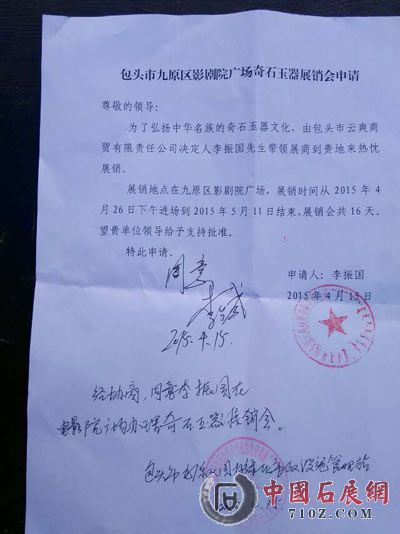 包头市九原区影剧院广场奇石玉器展销会申请
尊敬的领导：
为了弘扬中华名族的奇石玉器文化，由包头市云爽商
贸有限责任公司决定人李振国先生带领展商到贵地来热忱
展销。
展销地点在九原区影剧院广场，展销时间从 2015 年 4
月 26 日下午进场到 2015 年 5 月 11 日结束，展销会共 16 天。
望贵单位领导给予支持批准。
特此申请。
申请人：李振国
2015 年 4 月 15 日
同意
2015.4.15.
经协商，同意李振国在
电影院门前办理奇石玉器展销会。
包头市九原区
中國石展網
710Z.COM